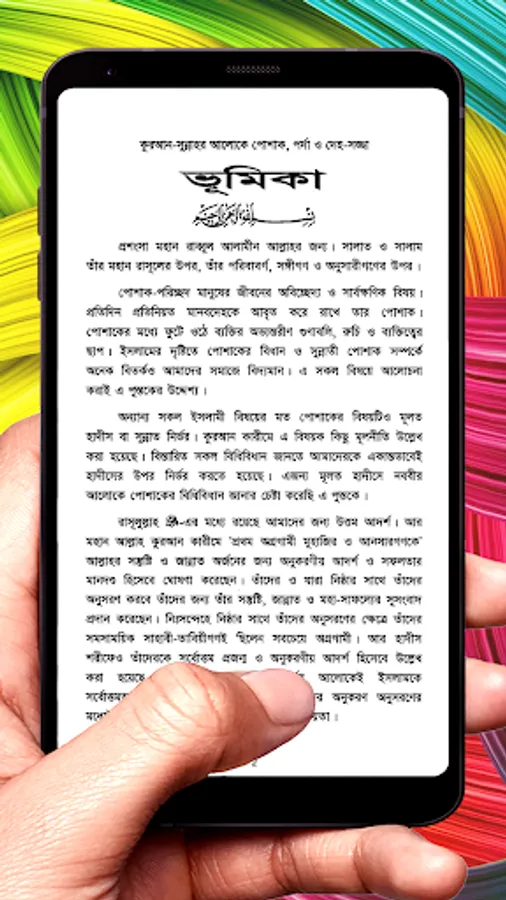 কুরআন-সুন্নাহর আলোকে পোশাক, পর্দা ও দেহ-সজ্জা
ভূমিকা
প্রশংসা মহান রাব্বুল আলামীন আল্লাহর জন্য। সালাত ও সালাম
তাঁর মহান রাসূলের উপর, তাঁর পরিবারবর্গ, সঙ্গীগণ ও অনুসারীগণের উপর।
পোশাক-পরিচ্ছদ মানুষের জীবনের অবিচ্ছেদ্য ও সার্বক্ষণিক বিষয়।
প্রতিদিন প্রতিনিয়ত মানবদেহকে আবৃত করে রাখে তার পোশাক।
পোশাকের মধ্যে ফুটে ওঠে ব্যক্তির অভ্যন্তরীণ গুণাবলি, রুচি ও ব্যক্তিত্বের
ছাপ। ইসলামের দৃষ্টিতে পোশাকের বিধান ও সুন্নাতী পোশাক সম্পর্কে
অনেক বিতর্কও আমাদের সমাজে বিদ্যমান। এ সকল বিষয়ে আলোচনা
করাই এ পুস্তকের উদ্দেশ্য।
অন্যান্য সকল ইসলামী বিষয়ের মত পোশাকের বিষয়টিও মূলত
হাদীস বা সুন্নাত নির্ভর। কুরআন কারীমে এ বিষয়ক কিছু মূলনীতি উল্লেখ
করা হয়েছে। বিস্তারিত সকল বিধিবিধান জানতে আমাদেরকে একান্তভাবেই
হাদীসের উপর নির্ভর করতে হয়েছে। এজন্য মূলত হাদীসে নববীর
আলোকে পোশাকের বিধিবিধান জানার চেষ্টা করেছি এ পুস্তকে।
রাসূলুল্লাহ ﷺ-এর মধ্যে রয়েছে আমাদের জন্য উত্তম আদর্শ। আর
মহান আল্লাহ কুরআন কারীমে 'প্রথম অগ্রগামী মুহাজির ও আনসারগণকে'
আল্লাহর সন্তুষ্টি ও জান্নাত অর্জনের জন্য অনুকরণীয় আদর্শ ও সফলতার
মানদণ্ড হিসেবে ঘোষণা করেছেন। তাঁদের ও যারা নিষ্ঠার সাথে তাঁদের
অনুসরণ করবে তাঁদের জন্য তাঁর সন্তুষ্টি, জান্নাত ও মহা-সাফল্যের সুসংবাদ
প্রদান করেছেন। নিঃসন্দেহে নিষ্ঠার সাথে তাঁদের অনুসরণের ক্ষেত্রে তাঁদের
সমসাময়িক সাহাবী-তাবিয়ীগণই ছিলেন সবচেয়ে অগ্রগামী। আর হাদীস
শরীফেও তাঁদেরকে সর্বোত্তম প্রজন্ম ও অনুকরণীয় আদর্শ হিসেবে উল্লেখ
করা হয়েছে আলোকেই ইসলামকে
অনুকরণ অনুসরণের